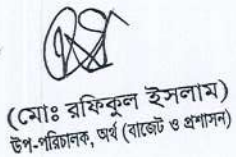 (মোঃ রফিকুল ইসলাম)
উপ-পরিচালক, অর্থ (বাজেট ও প্রশাসন)